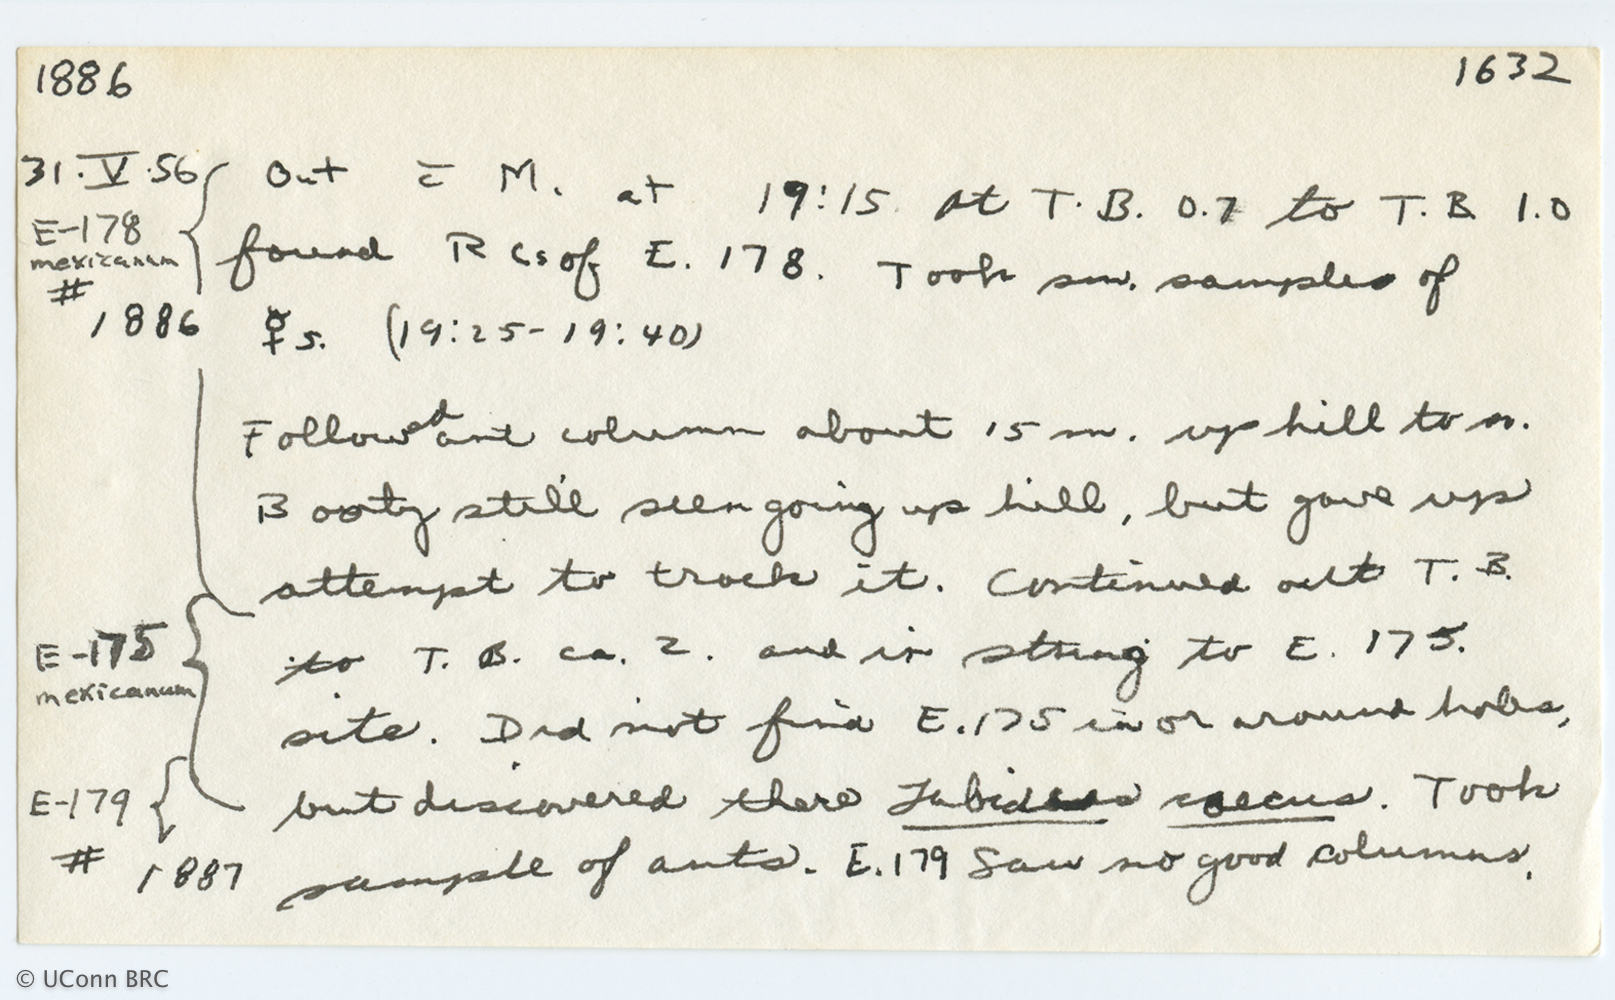 1886 1632
31.V.56 Out c̄ M. at 19:15 At T.B. 0.7 to T.B 1.0
E-178 found RCs of E. 178. Took sm. samples of
mexicanum
#
1886 ☿s. (19:25-19:40)
Followed ant column about 15 m. up hill to n.
Booty still seen going up hill, but gave up
attempt to track it. Continued out T.B.
E-175 to T.B. ca. 2. and in string to E. 175.
mexicanum
site. Did not find E.175 in or around holes,
E-179 but discovered there Labidus coecus. Took
# 1887 sample of ants. E.179 Saw no good columns.
© UConn BRC